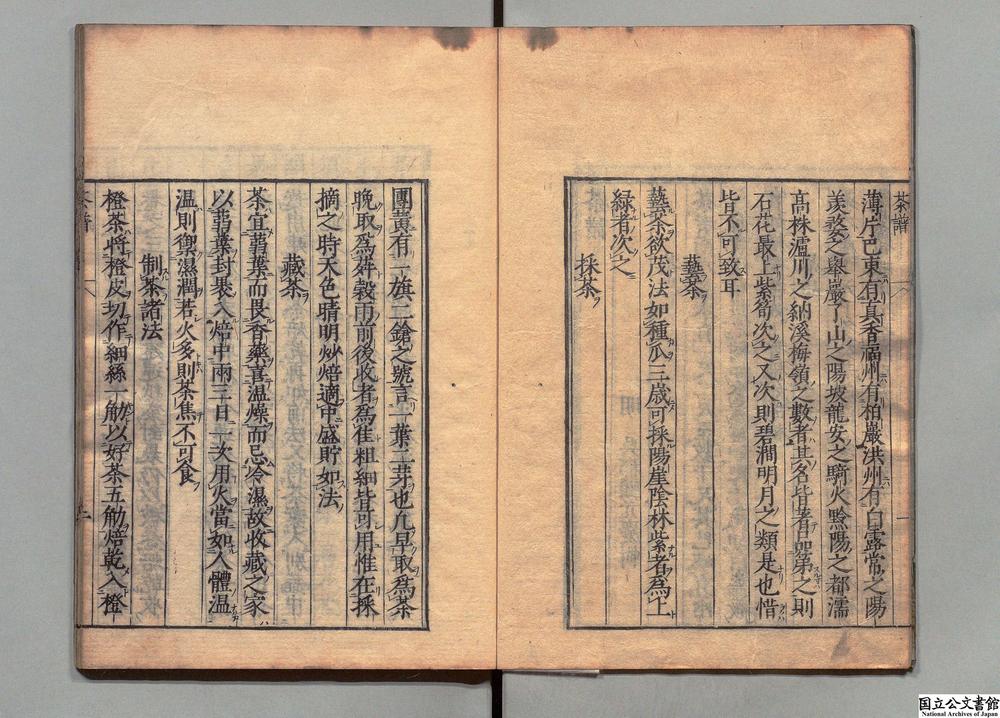 茶譜
薄片巴東有真香福州有柏巖洪州有白露常之陽
羨婺之舉巖丫山之陽坡龍安之騎火黔陽之都濡
髙株瀘川之納溪梅嶺之數者其名皆著品第之則
石花最上紫筍次之又次則碧澗明月之類是也惜
皆不可致耳
藝茶
藝茶欲茂法如種瓜三歲可採陽崖陰林紫者為上
緑者次之
採茶
團黃有一旗二鎗之號言一葉二芽也凢早取爲茶
晚取爲荈穀雨前後收者爲佳粗細皆可用惟在採
摘之時天色晴明炒焙適中盛貯如法
藏茶
茶宜蒻葉而畏香藥喜温燥而忌冷濕故收藏之家
以蒻葉封褁入焙中兩三日一次用火當如人體温
温則禦濕潤若火多則茶焦不可食
制茶諸法
橙茶將橙皮切作細絲一觔以好茶五觔焙乾入橙
茶譜
国立公文書館
National Archives of Japan